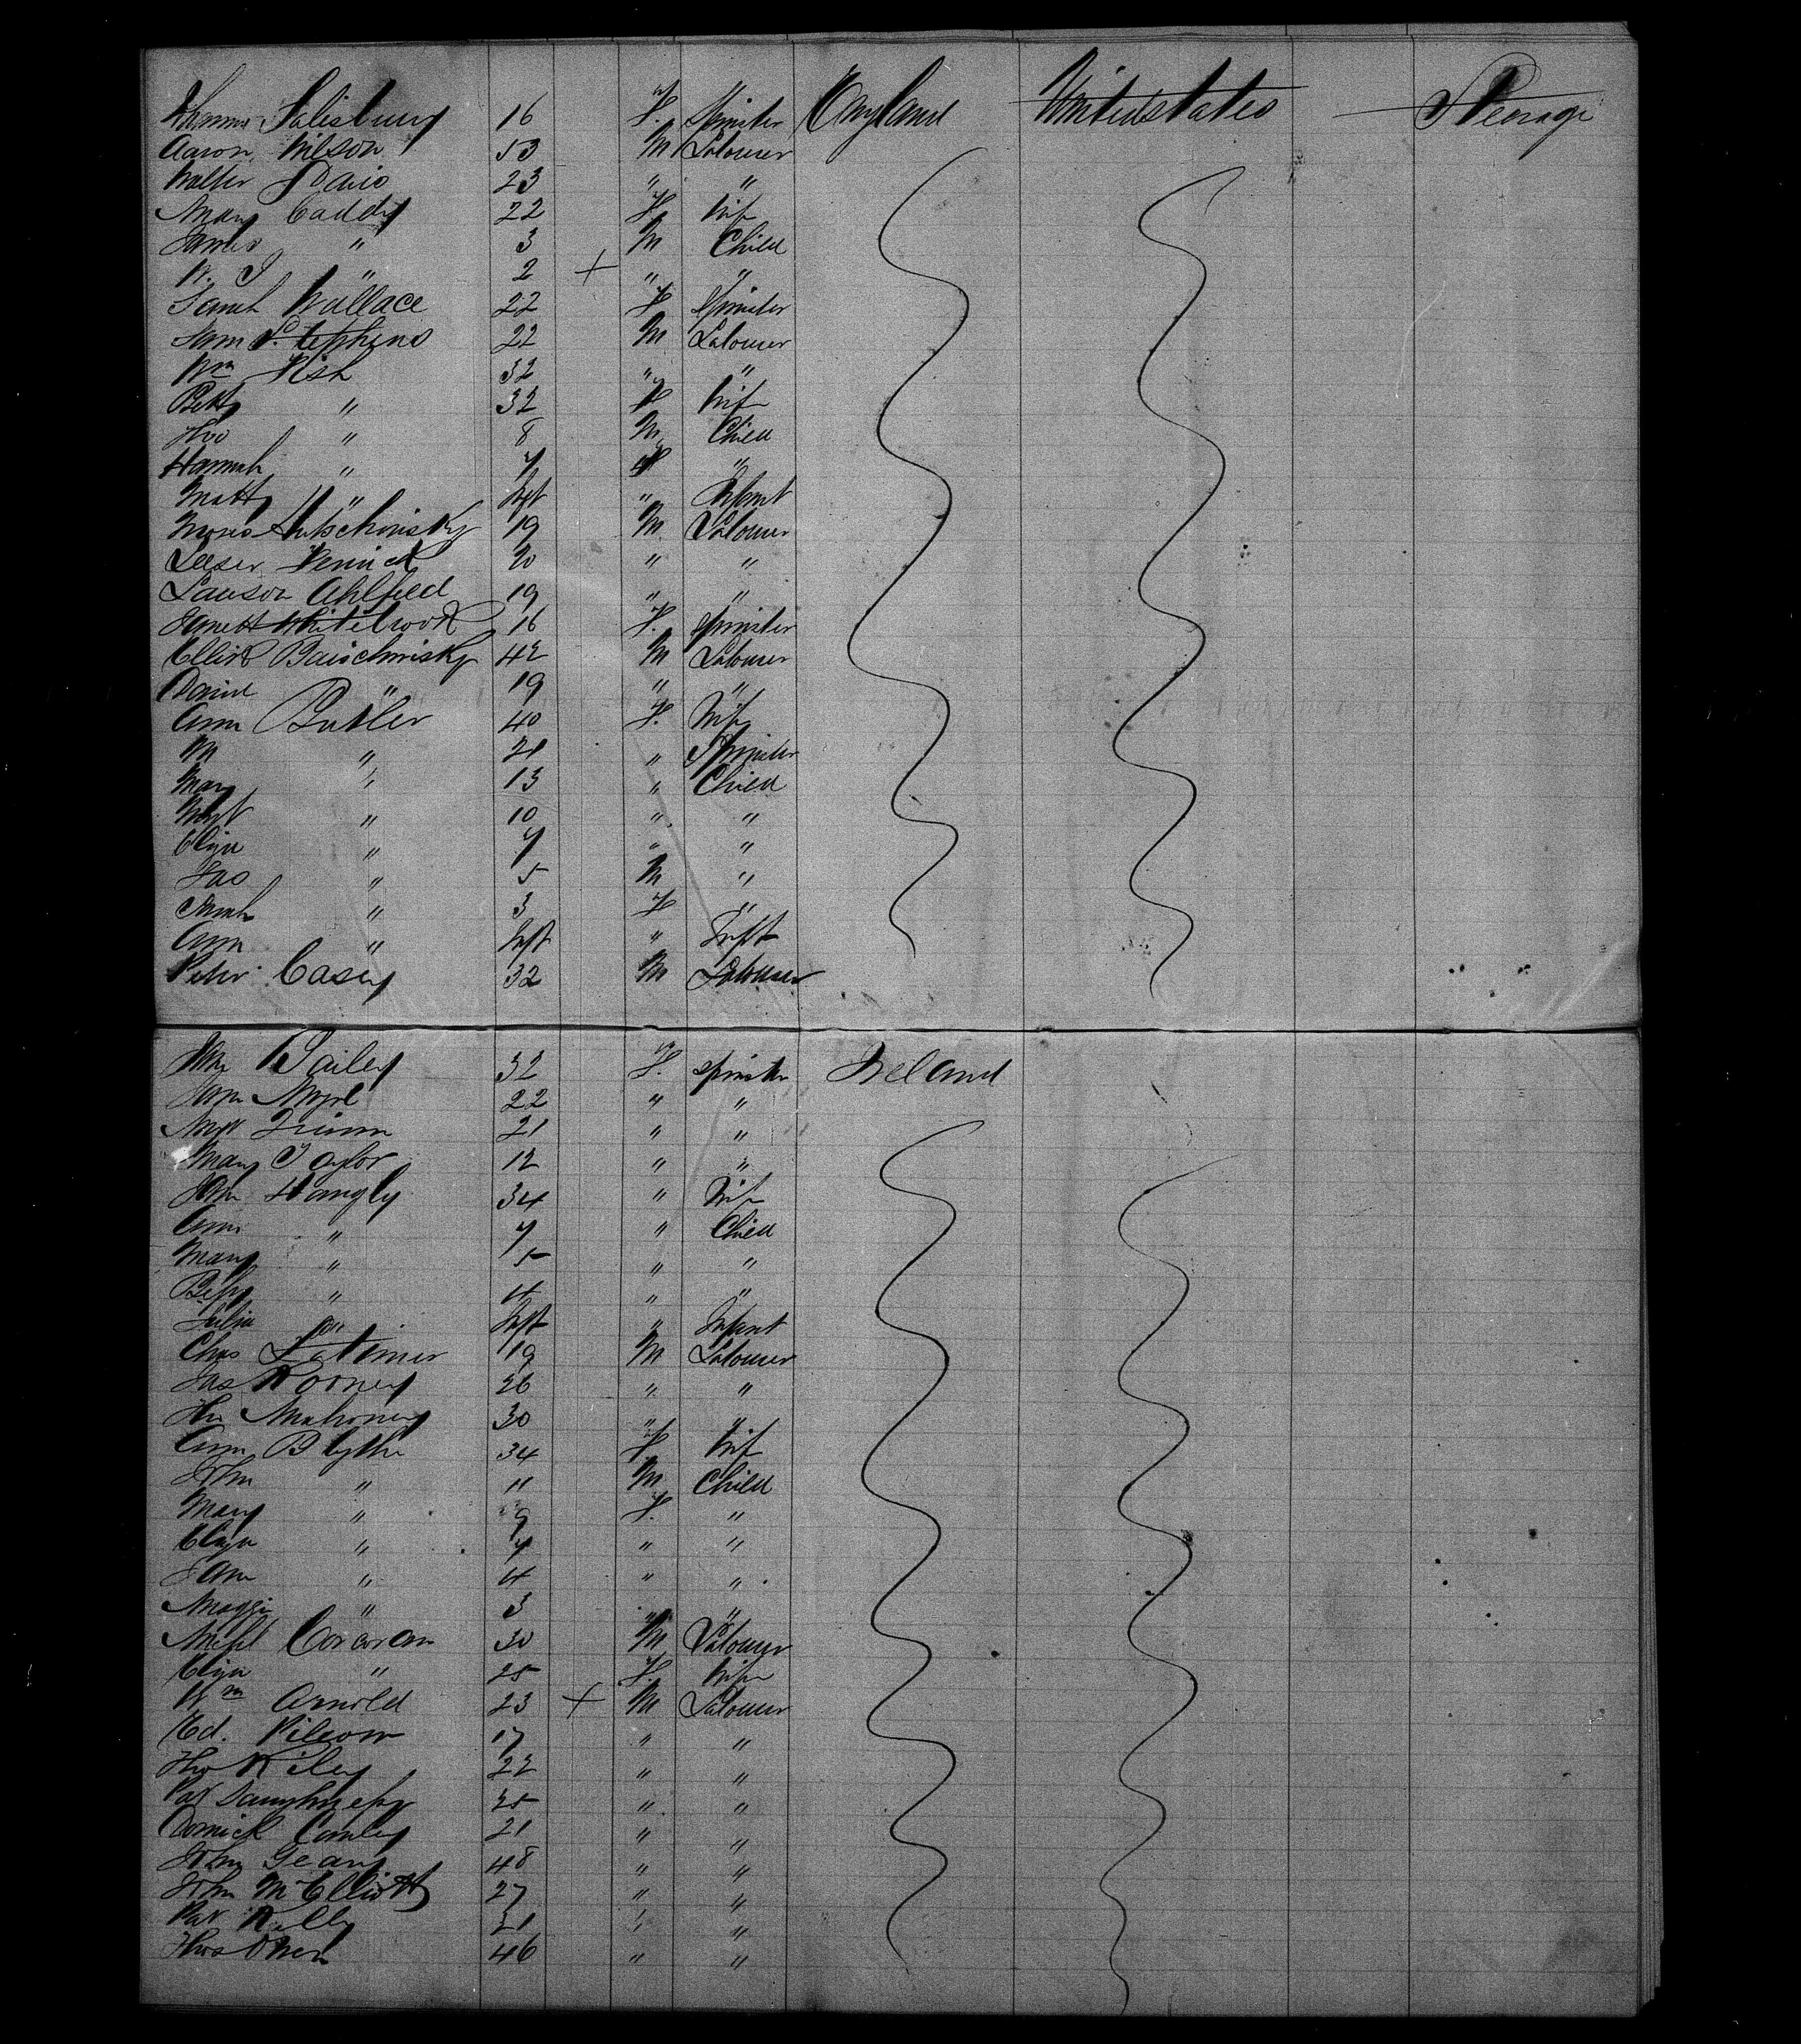 Salisbury 16 F. Spinster England United States Steerage
Aaron Wilson 53 M Labourer
Walter Davis 23 " "
Mary Caddy 22 F Wife
James " 3 M Child
W. J " 2 + " "
Sarah Wallace 22 F Spinster
Sam Stephens 22 M Labourer
Wm Fish 32 " "
Betty " 32 F Wife
Tho " 8 M Child
Hannah " 7 F "
Matty " Inft " Infant
Moses 19 M Labourer
Leeser 20 " "
Lawson Ahlfeld 19 " "
Janett Whitebrook 16 F. Spinster
Ellick 42 M Labourer
David " 19 " "
Ann Butler 40 F. Wife
M " 21 " Spinster
Mary " 13 " Child
Mgt " 10 " "
Eliza " 7 " "
Jas " 5 M "
Sarah " 3 F "
Ann " Inft " Inft
Peter Casey 32 M Labourer
Bailey 32 F. Spinster Ireland
Jane 22 " "
Mgt Quinn 21 " "
Mary Taylor 12 " "
Jane Hangly 34 " Wife
Ann " 7 " Child
Mary " 5 " "
Bessy " 4 " "
Julia " Inft " Infant
Chas Latimer 19 M Labourer
Jas Rooney 26 " "
Mahoney 30 "
Ann Blythe 34 F. Wife
John " 11 M Child
Mary " 9 F. "
Eliza " 7 " "
Jane " 4 " "
Maggie " 3 " "
Michl Corcoran 30 M Labourer
Eliza " 25 F. Wife
Wm Arnold 23 + M Labourer
Ed. 17 " "
Tho Riley 22 " "
Pat 25 " "
Dominick 21 " "
John Geary 48 " "
John McElliott 27 " "
Pat Kelly 21 " "
Thos 46 " "